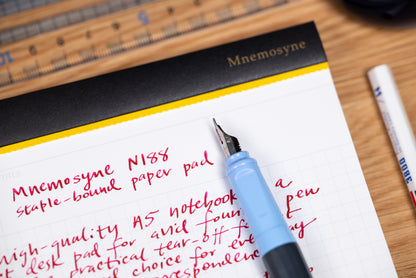 Mnemosyne
TITLE
Mnemosyne N188
staple-bound paper pad
high-quality A5 notebook a
desk pad for avid foun pen
practical tear-off f
choice for everyday
respondence